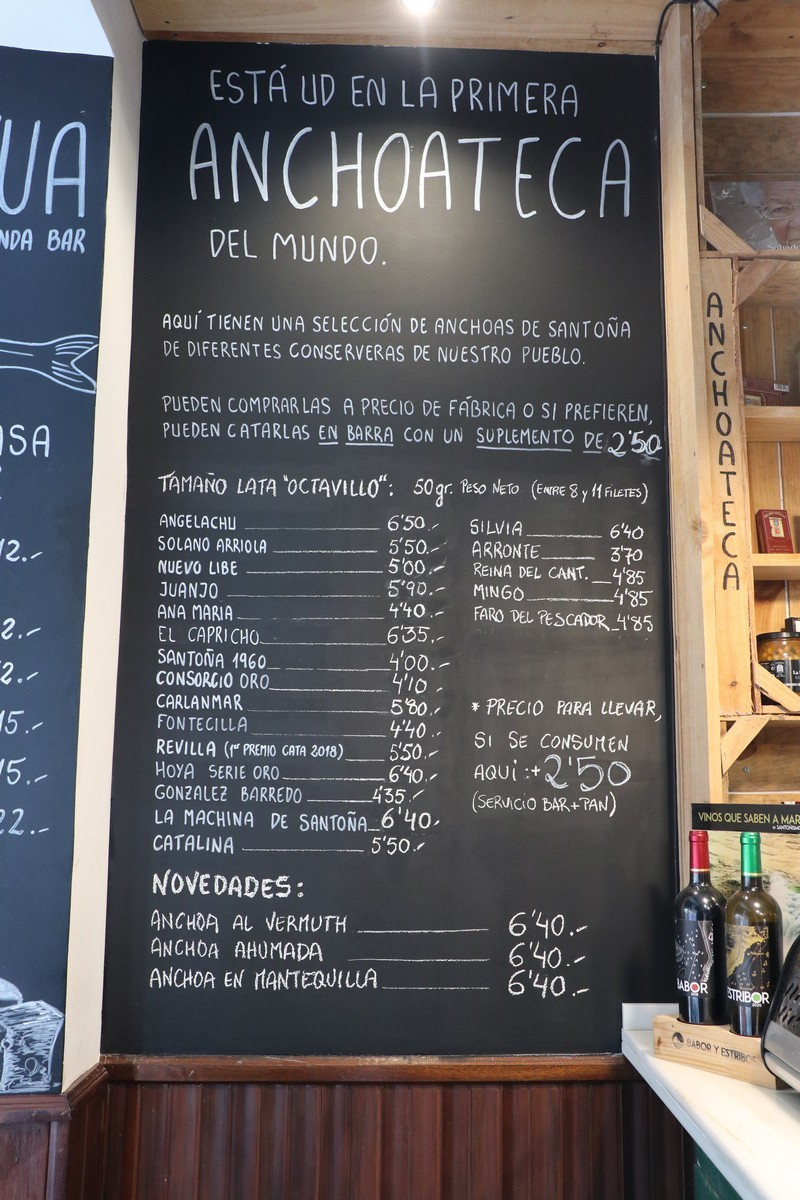 UA
NDA BAR
ASA
12.-
2.-
2.-
15.-
15.-
22.-
ESTÁ UD EN LA PRIMERA
ANCHOATECA
DEL MUNDO.
AQUÍ TIENEN UNA SELECCIÓN DE ANCHOAS DE SANTOÑA
DE DIFERENTES CONSERVERAS DE NUESTRO PUEBLO.
PUEDEN COMPRARLAS A PRECIO DE FÁBRICA O SI PREFIEREN,
PUEDEN CATARLAS EN BARRA CON UN SUPLEMENTO DE 2'50
TAMAÑO LATA "OCTAVILLO": 50gr. PESO NETO (ENTRE 8 y 11 FILETES)
ANGELACHU 6'50.-
SOLANO ARRIOLA 5'50.-
NUEVO LIBE 5'00.-
JUANJO 5'90.-
ANA MARIA 4'40.-
EL CAPRICHO 6'35.-
SANTOÑA 1960 4'00.-
CONSORCIO ORO 4'10.-
CARLANMAR 5'80.-
FONTECILLA 4'40.-
REVILLA (1er PREMIO CATA 2018) 5'50.-
HOYA SERIE ORO 6'40.-
GONZALEZ BARREDO 4'35.-
LA MACHINA DE SANTOÑA 6'40.-
CATALINA 5'50.-
SILVIA 6'40
ARRONTE 3'70
REINA DEL CANT. 4'85
MINGO 4'85
FARO DEL PESCADOR 4'85
* PRECIO PARA LLEVAR,
SI SE CONSUMEN
AQUÍ:+2'50
(SERVICIO BAR+PAN)
NOVEDADES:
ANCHOA AL VERMUTH 6'40.-
ANCHOA AHUMADA 6'40.-
ANCHOA EN MANTEQUILLA 6'40.-
ANCHOATECA
VINOS QUE SABEN A MAR
BABOR
ESTRIBOR
BABOR Y ESTRIBOR